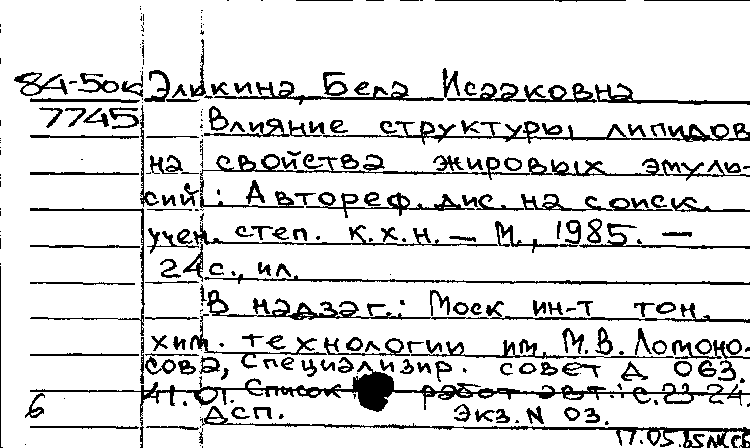 84-50к Элькина, Бела Исааковна
7745 Влияние структуры липидов
на свойства жировых эмуль-
сий : Автореф. дис. на соиск.
учен. степ. к.х.н. — М., 1985. —
24 с., ил.
В надзаг.: Моск. ин-т тон.
хим. технологии им. М.В. Ломоно-
сова, Специализир. совет Д 063.
41.01. Список работ авт.: с. 23-24.
6 ДСП. Экз. N 03.
17.05.85